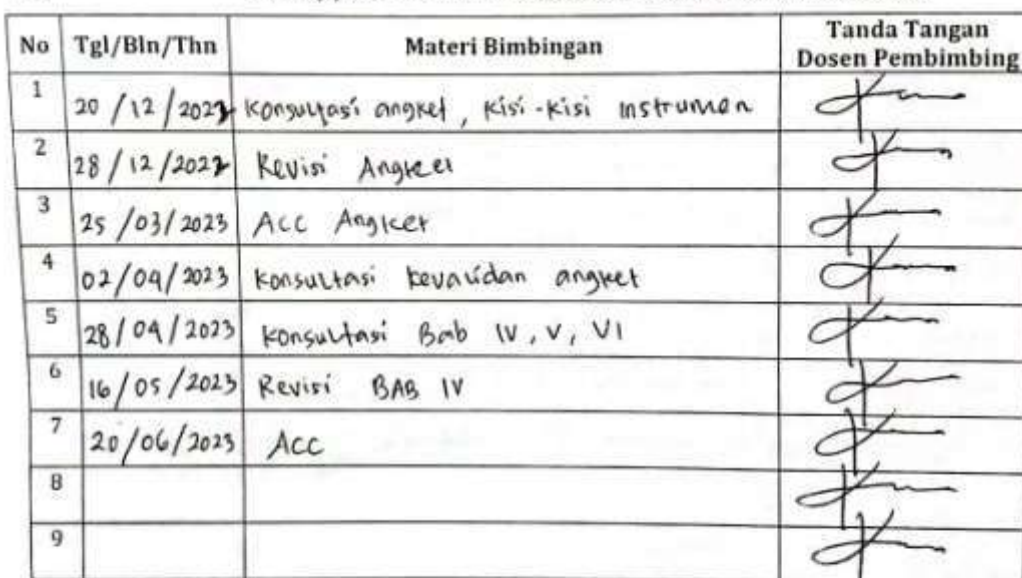 No Tgl/Bln/Thn Materi Bimbingan Tanda Tangan Dosen Pembimbing
1 20/12/2022 Konsultasi angket, Kisi-Kisi Instrumen
2 28/12/2022 Revisi Angket
3 25/03/2023 Acc Angket
4 02/04/2023 Konsultasi kevalidan angket
5 28/04/2023 Konsultasi Bab IV, V, VI
6 16/05/2023 Revisi BAB IV
7 20/06/2023 Acc
8
9